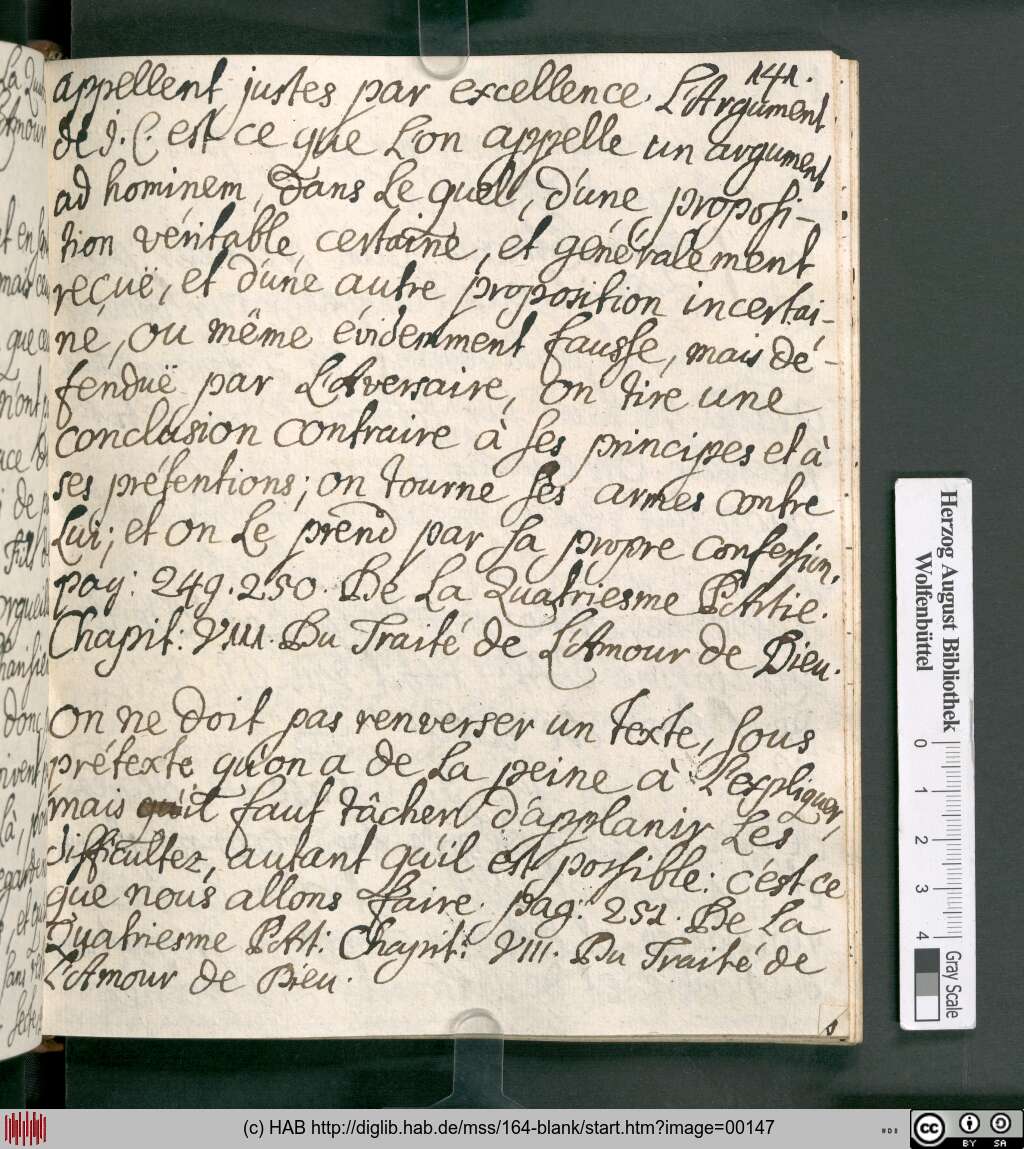 141.
appellent justes par excellence. L'Argument
de J. C. est ce que L'on appelle un argument
ad hominem, dans Le quel, d'une proposi-
tion véritable, certaine, et généralement
reçuë, et d'une autre proposition incertai-
ne, ou même évidemment fausse, mais dé-
fenduë par L'Aversaire, on tire une
conclusion contraire à ses principes et à
ses prétentions; on tourne ses armes contre
Lui; et on Le prend par sa propre confession.
pag: 249. 250. De La Quatriesme PArtie.
Chapit: VIII. Du Traité de L'Amour de Dieu.
On ne doit pas renverser un texte, sous
prétexte qu'on a de La peine à L'expliquer,
mais qu'il faut tâcher d'applanir Les
difficultez, autant qu'il est possible: c'est ce
que nous allons faire. pag: 252. De La
Quatriesme PArt: Chapit: VIII. Du Traité de
L'Amour de Dieu.
Herzog August Bibliothek
Wolfenbüttel
0 1 2 3 4
Gray Scale
(c) HAB http://diglib.hab.de/mss/164-blank/start.htm?image=00147
CC BY SA